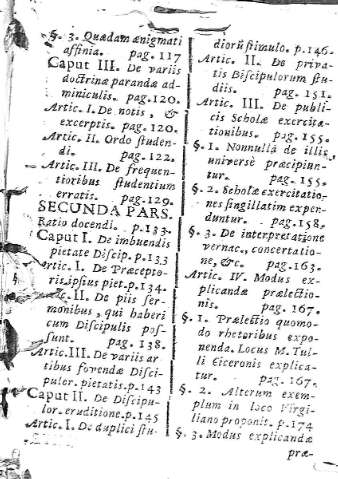 §. 3. Quædam ænigmati
affinia. pag. 117
Caput III. De variis
doctrinæ parandæ ad-
miniculis. pag. 120.
Artic. I. De notis, &
excerptis. pag. 120.
Artic. II. Ordo studen-
di. pag. 122.
Artic. III. De frequen-
tioribus studentium
erratis. pag. 129.
SECUNDA PARS.
Ratio docendi. p. 133.
Caput I. De imbuendis
pietate Discip. p. 133
Artic. I. De Præcepto-
ris ipsius piet. p. 134.
Artic. II. De piis ser-
monibus, qui haberi
cum Discipulis pos-
sunt. pag. 138.
Artic. III. De variis ar-
tibus fovendæ Disci-
pulor. pietatis. p. 143
Caput II. De Discipu-
lor. eruditione. p. 145
Artic. I. De duplici stu-
diorū stimulo. p. 146.
Artic. II. De priva-
tis Discipulorum stu-
diis. pag. 151.
Artic. III. De publi-
cis Scholæ exercita-
tionibus. pag. 155.
§. 1. Nonnulla de illis
universè præcipiun-
tur. pag. 155.
§. 2. Scholæ exercitatio-
nes singillatim expen-
duntur. pag. 158.
§. 3. De interpretatione
vernac., concertatio-
ne, &c. pag. 163.
Artic. IV. Modus ex-
plicandæ prælectio-
nis. pag. 167.
§. 1. Prælectio quomo-
do rhetoribus expo-
nenda. Locus M. Tul-
li Ciceronis explica-
tur. pag. 167.
§. 2. Alterum exem-
plum in loco Virgi-
liano proponit. p. 174
§. 3. Modus explicandæ
præ-